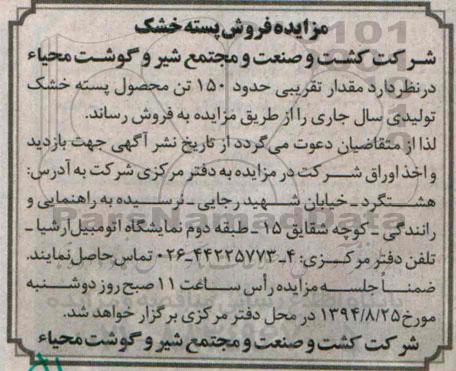 مزایده فروش پسته خشک
شرکت کشت و صنعت و مجتمع شیر و گوشت محیاء
در نظر دارد مقدار تقریبی حدود ۱۵۰ تن محصول پسته خشک
تولیدی سال جاری را از طریق مزایده به فروش رساند.
لذا از متقاضیان دعوت می‌گردد از تاریخ نشر آگهی جهت بازدید
و اخذ اوراق شرکت در مزایده به دفتر مرکزی شرکت به آدرس:
هشتگرد ـ خیابان شهید رجایی ـ نرسیده به راهنمایی و
رانندگی ـ کوچه شقایق ۱۵ ـ طبقه دوم نمایشگاه اتومبیل آرشیا ـ
تلفن دفتر مرکزی: ۴ـ۴۴۲۲۵۷۷۳ـ۰۲۶ تماس حاصل نمایند.
ضمناً جلسه مزایده رأس ساعت ۱۱ صبح روز دوشنبه
مورخ ۱۳۹۴/۸/۲۵ در محل دفتر مرکزی برگزار خواهد شد.
شرکت کشت و صنعت و مجتمع شیر و گوشت محیاء
ParsNamadData